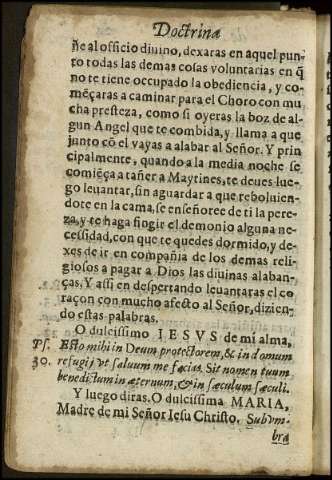 Doctrina
ñe al officio diuino, dexaras en aquel pun-
to todas las demas cosas voluntarias en q̃
no te tiene occupado la obediencia, y co-
mẽçaras a caminar para el Choro con mu
cha presteza, como si oyeras la boz de al-
gun Angel que te combida, y llama a que
junto cõ el vayas a alabar al Señor. Y prin
cipalmente, quando a la media noche se
comiẽça a tañer a Maytines, te deues lue-
go leuantar, sin aguardar a que reboluien-
dote en la cama, se enseñoree de ti la pere-
za, y te haga fingir el demonio alguna ne-
cessidad, con que te quedes dormido, y de-
xes de ir en compañia de los demas reli-
giosos a pagar a Dios las diuinas alaban-
ças. Y assi en despertando leuantaras el co
raçon con mucho afecto al Señor, dizien-
do estas palabras.
O dulcissimo IESVS de mi alma,
Ps. Esto mihi in Deum protectorem, & in domum
30. refugij, vt saluum me facias. Sit nomen tuum
benedictum in æternum, & in sæculum sæculi.
Y luego diras. O dulcissima MARIA,
Madre de mi Señor Iesu Christo. Sub vm-
bra